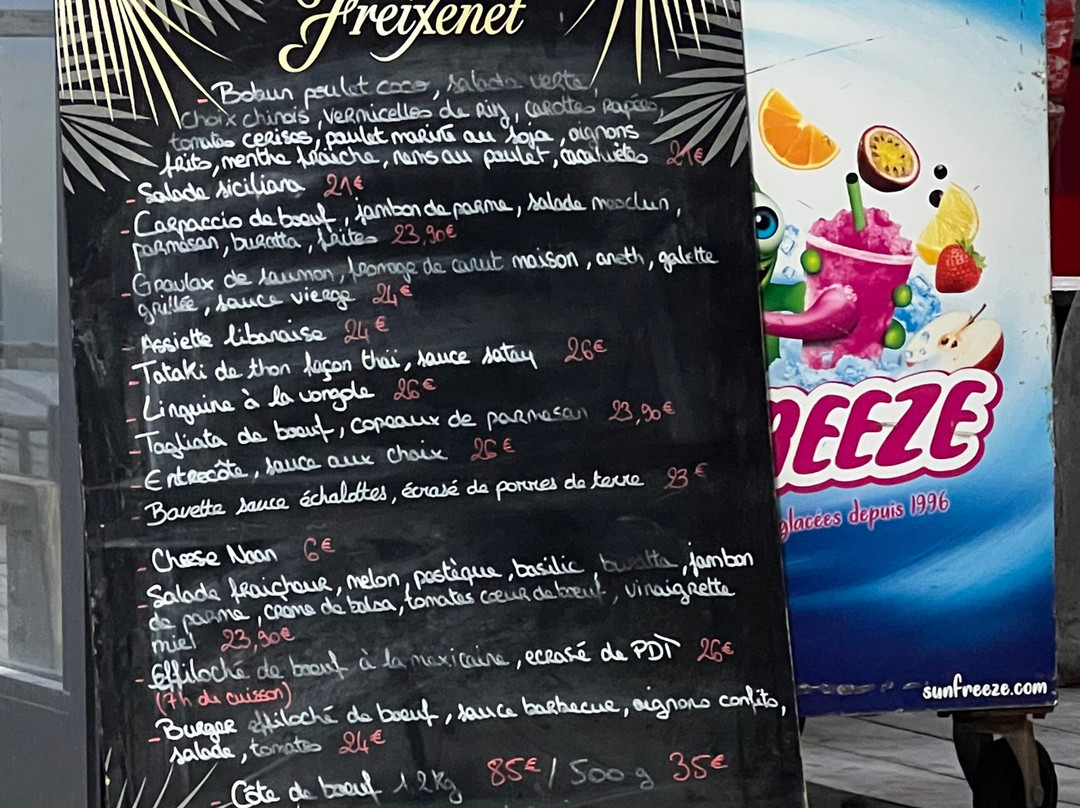 Freixenet
- Bobun poulet coco, salade verte,
choix chinois, vermicelles de riz, carottes rapées,
tomates cerises, poulet mariné au soja, oignons
frits, menthe fraîche, nems au poulet, cacahuètes 21€
- Salade siciliana 21€
- Carpaccio de boeuf, jambon de parme, salade mesclun,
parmesan, buratta, frites 23,90€
- Gravlax de saumon, fromage de canut maison, aneth, galette
grillée, sauce vierge 24€
- Assiette libanaise 24€
- Tataki de thon façon thaï, sauce satay 26€
- Linguine à la vongole 26€
- Tagliata de boeuf, copeaux de parmesan 23,90€
- Entrecôte, sauce aux choix 26€
- Bavette sauce échalottes, écrasé de pommes de terre 23€
- Cheese Naan 6€
- Salade fraicheur, melon, pastèque, basilic buratta, jambon
de parme, crème de balsa, tomates coeur de boeuf, vinaigrette
miel 23,90€
- Effiloché de boeuf à la mexicaine, ecrasé de PDT 26€
(7h de cuisson)
- Burger effiloché de boeuf, sauce barbecue, oignons confits,
salade, tomates 24€
- Côte de boeuf 1.2Kg 85€ / 500g 35€
REEZE
glacées depuis 1996
sunfreeze.com